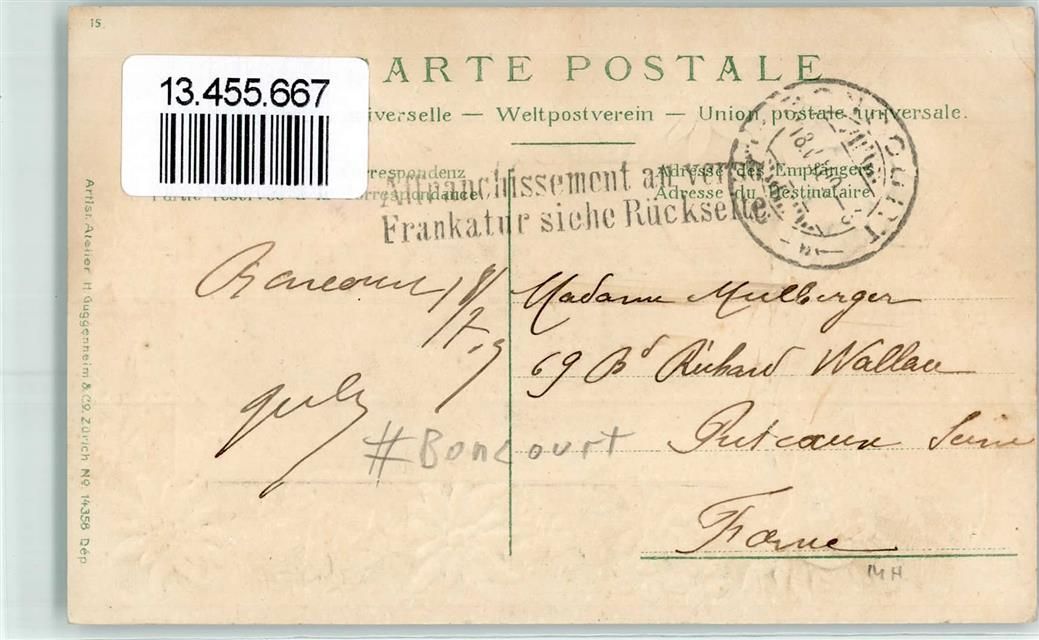 15
13.455.667
ARTE POSTALE
iverselle — Weltpostverein — Union postale universale.
respondenz
Adresse des Empfängers
Partie réservée à la correspondance
Adresse du Destinataire
Affranchissement au verso
Frankatur siehe Rückseite
Boncourt 18/
Madame Mulberger
69 Bd Richard Wallace
Puteaux Seine
France
#Boncourt
14 H
Artist. Atelier H. Guggenheim & Co. Zürich No. 14358 Dép